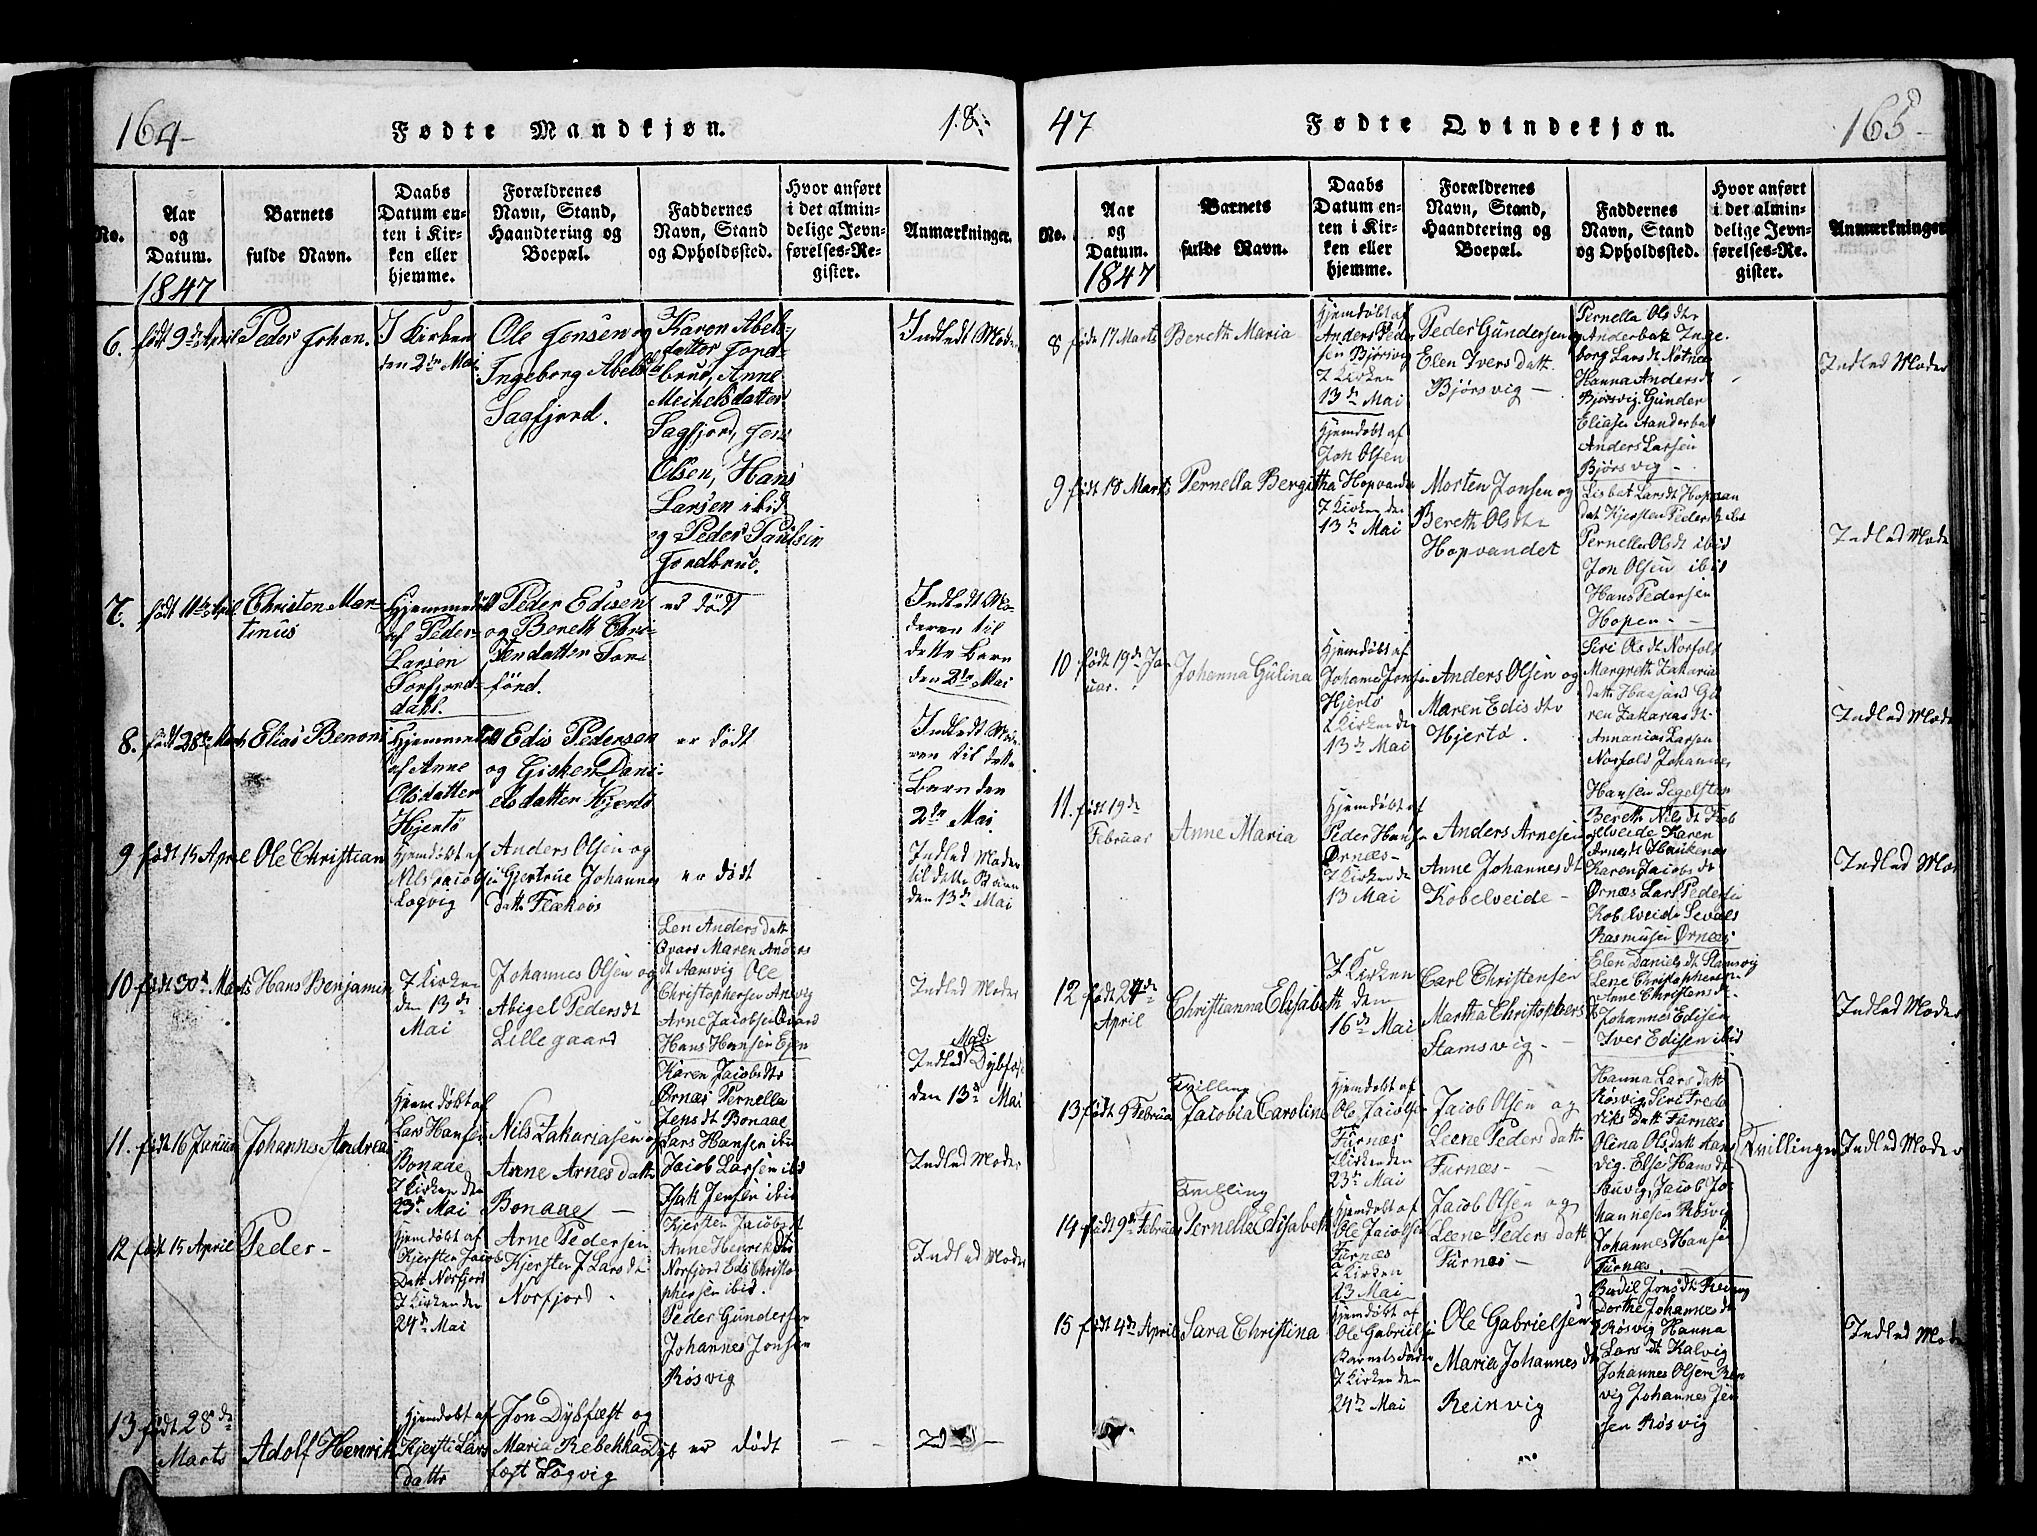 164
Fødte Mandkjøn.
18
No.
Aar
og
Datum.
1847
Barnets
fulde Navn.
Daabs
Datum en-
ten i Kir-
ken eller
hjemme.
Forældrenes
Navn, Stand,
Haandtering og
Boepæl.
Faddernes
Navn, Stand
og Opholdssted.
Hvor anført
i det almin-
delige Jevn-
førelses-Re-
gister.
Anmærkninger.
6.
født 9de April
Peder Johan.
I Kirken
den 2den Mai
Ole Jensen og
Ingeborg Abelsd
Sagfjord.
Karen Abel-
datter Jord-
brud, Anne
Meikelsdatter
Sagfjord, Jens
Olsen, Hans
Larsen ibid
og Peder Paulsen
Jordbrud.
Indledt Moder
7.
født 11te April
Christen Mar-
tinus
Hjemmedøbt
af Peder
Larsen
Sorfjord-
dahl.
Peder Edisen
og Bereth Chri-
stendatter Sør-
fjord.
er død
Indledt Mo-
deren til
dette Barn
den 2den Mai
8.
født 28de Marts
Elias Benoni
Hjemmedøbt
af Anne
Olsdatter
Hjertø
Edis Pedersen
og Gisken Dani-
elsdatter Hjertø
er død
Indledt Mode-
ren til dette
Barn den
2den Mai.
9
født 15 April
Ole Christian
Hjemdøbt af
Nils Jacobsen
Løgvig
Anders Olsen og
Gjertrue Johannes
datt. Flækøs
er død
Indled Moder
til dette Barn
den 13de Mai
10
født 30d Marts
Hans Benjamin
I Kirken
den 13de
Mai
Johannes Olsen og
Abigel Pedersdt
Lillegaard
Len Andersdatt
Qvars Maren Anders
dt Aansvig Ole
Christophersen Ansvig
Arne Jacobsen Qvars
Hans Hansen Ejen
Indled Moder
Indled Mod: Dybfæst
den 13d Mai
11.
født 16 Januar
Johannes Andrea
Hjemdøbt af
Lars Hansen
Bonaae
I Kirken den
23d Mai
Nils Zakariasen og
Anne Arnes datt
Bonaae
Karen Jacobsdtr
Ørnæs Pernella
Jensdt Bonaae
Lars Hansen ibid
Jacob Larsen ibid
Isak Jensen ibid
Indled Moder
12
født 15 April
Peder
Hjemdøbt af
Kjersten Jacob
Datt Norfjord
I Kirken den
24d Mai
Arne Pedersen
Kjersten J Larsdt
Norfjord
Kjersten Jacobsdt
Anne Henrikdtr
Norfjord Edis Christo
phersen ibid.
Peder Gundersen
Johannes Jonsen
Røsvig
Indled Moder
13
født 28de
Marts
Adolf Henrik
Hjemdøbt af
Kjersti Lars
datter
Jon Dybfæst og
Maria Rebekka Dyb
fæst Løgvig
er død
47
Fødte Qvindekjøn.
165
No.
Aar
og
Datum.
1847
Barnets
fulde Navn.
Daabs
Datum en-
ten i Kir-
ken eller
hjemme.
Forældrenes
Navn, Stand,
Haandtering og
Boepæl.
Faddernes
Navn, Stand
og Opholdssted.
Hvor anført
i det almin-
delige Jevn-
førelses-Re-
gister.
Anmærkninger
8
føde 17 Marts
Bereth Maria
Hjemdøbt af
Anders Peder
sen Bjørsvig
I Kirken
13de Mai
Peder Gundersen og
Elen Ivers datt.
Bjørsvig
Pernella Olsdtr
Anderbak Inge-
borg Larsdt Nøtnes
Hanna Andersdt
Bjørsvig Gunder
Eliasen Aanderbak
Anders Larsen
Bjørsvig
Indled Moder
9
født 18 Marts
Pernella Bergitha
Hjemdøbt af
Jon Olsen
Hopvandet
I Kirken den
13de Mai
Morten Jonsen og
Bereth Olsdtr
Hopvandet
Lisbat Larsdt Hopvan
det Kjersten Pedersdt ibd
Pernella Olsdt ibid
Jon Olsen ibid
Hans Pedersen
Hopen
Indled Moder
10
født 19de Ja-
nuar.
Johanna Gulina
Hjemdøbt af
Johanna Jonsen
Hjertø
I Kirken den
13de Mai
Anders Olsen og
Maren Edisdtr
Hjertø.
Siri Olsdt Norfold
Margreth Zakaria
datt Haasand Gu
ren Zakariasdt
Annanias Larsen
Norfold Johannes
Hansen Segelsteen
Indled Moder
11.
født 19de
Februar
Anne Maria
Hjemdøbt af
Peder Hansen
Ørnæs
I Kirken den
13 Mai
Anders Arnesen
Anne Johannesdt
Kobelveide
Bereth Nilsdt Kob
elveide Karen
Arnesdt Haukenæs
Karen Jacobsdt
Ørnæs Lars Pedersen
Kobelveide Sevals
Rasmusen Ørnæs
Indled Moder
12
født 24de
April
Christianna Elisabeth
I Kirken
den
16de Mai
Carl Christensen
Martha Christophersdt
Stamsvig
Elen Danielsdt Stamsvig
Lene Christophersen
Anne Christensdt
Johannes Edisen
Iver Edisen ibid
Indled Moder
13
født 9 Februar
Tvilling
Jacobia Caroline
Hjemdøbt af
Ole Jacobsen
Furnæs
I Kirken den
23de Mai
Jacob Olsen og
Leene Peders datt
Furnæs
Hanna Lars datt
Røsvig Siri Frede
riks datt Furnæs
Olina Olsdatt Aans
vig. Else Hansdt
Buvig, Jacob Jo-
hannesen Røsvig
Johannes Hansen
Furnæs
Tvillinger
Indled Moder
14
født 9de Februar
Tvilling
Pernelle Elisabeth
Hjemdøbt af
Ole Jacobsen
Furnæs
I Kirken
23 Mai
Jacob Olsen og
Leene Peders datt
Furnæs
15
født 4de April
Sara Christina
Hjemdøbt af
Ole Gabrielsen
Barnets Fader
I Kirken den
24de Mai
Ole Gabrielsen
Maria Johannesdt
Reinvig
Bodil Jonsdt Reinvig
Dorthe Johannesdt
Røsvig Hanna
Larsdt Kalvig
Johannes Olsen Rein
vig Johannes Jen
sen Røsvig
Indled Moder